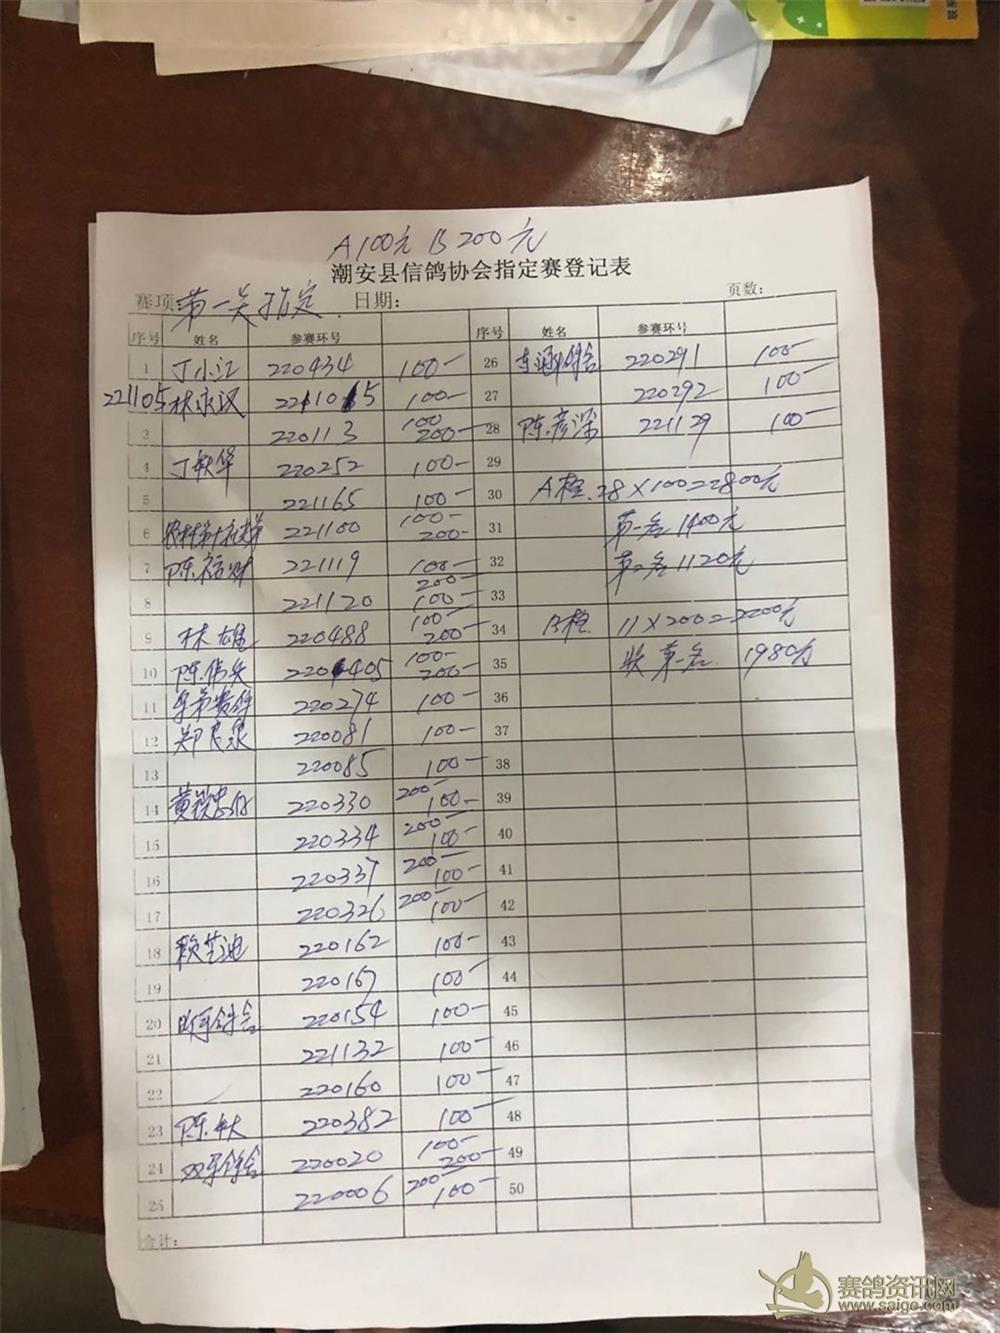 A100元 B200元
潮安县信鸽协会指定赛登记表
赛项: 第一关指定 日期: 页数:
序号 姓名 参赛环号 序号 姓名 参赛环号
1 丁小江 220434 100- 26 220291 100-
221105 林永汉 221015 100- 27 220292 100-
3 220113 100 200- 28 陈彦深 221129 100-
4 丁敏华 220252 100- 29
5 221165 100- 30 A栏 28×100=2800元
6 221100 100- 200- 31 第一名 1400元
7 陈裕财 221119 100- 200- 32 第二名 1120元
8 221120 100- 33
9 林雄 220488 100- 200- 34 B栏 11×200=2200元
10 陈伟兵 220405 100- 200- 35 奖第一名 1980元
11 220274 100- 36
12 郑良泉 220081 100- 37
13 220085 100- 38
14 220330 200- 100- 39
15 220334 200- 100- 40
16 220337 200- 100- 41
17 220326 200- 100- 42
18 赖芝迪 220162 100- 43
19 220167 100- 44
20 220154 100- 45
21 221132 100- 46
22 220160 100- 47
23 陈 220382 100- 48
24 220020 100- 200- 49
25 220006 200- 100- 50
合计:
赛鸽资讯网
www.saige.com